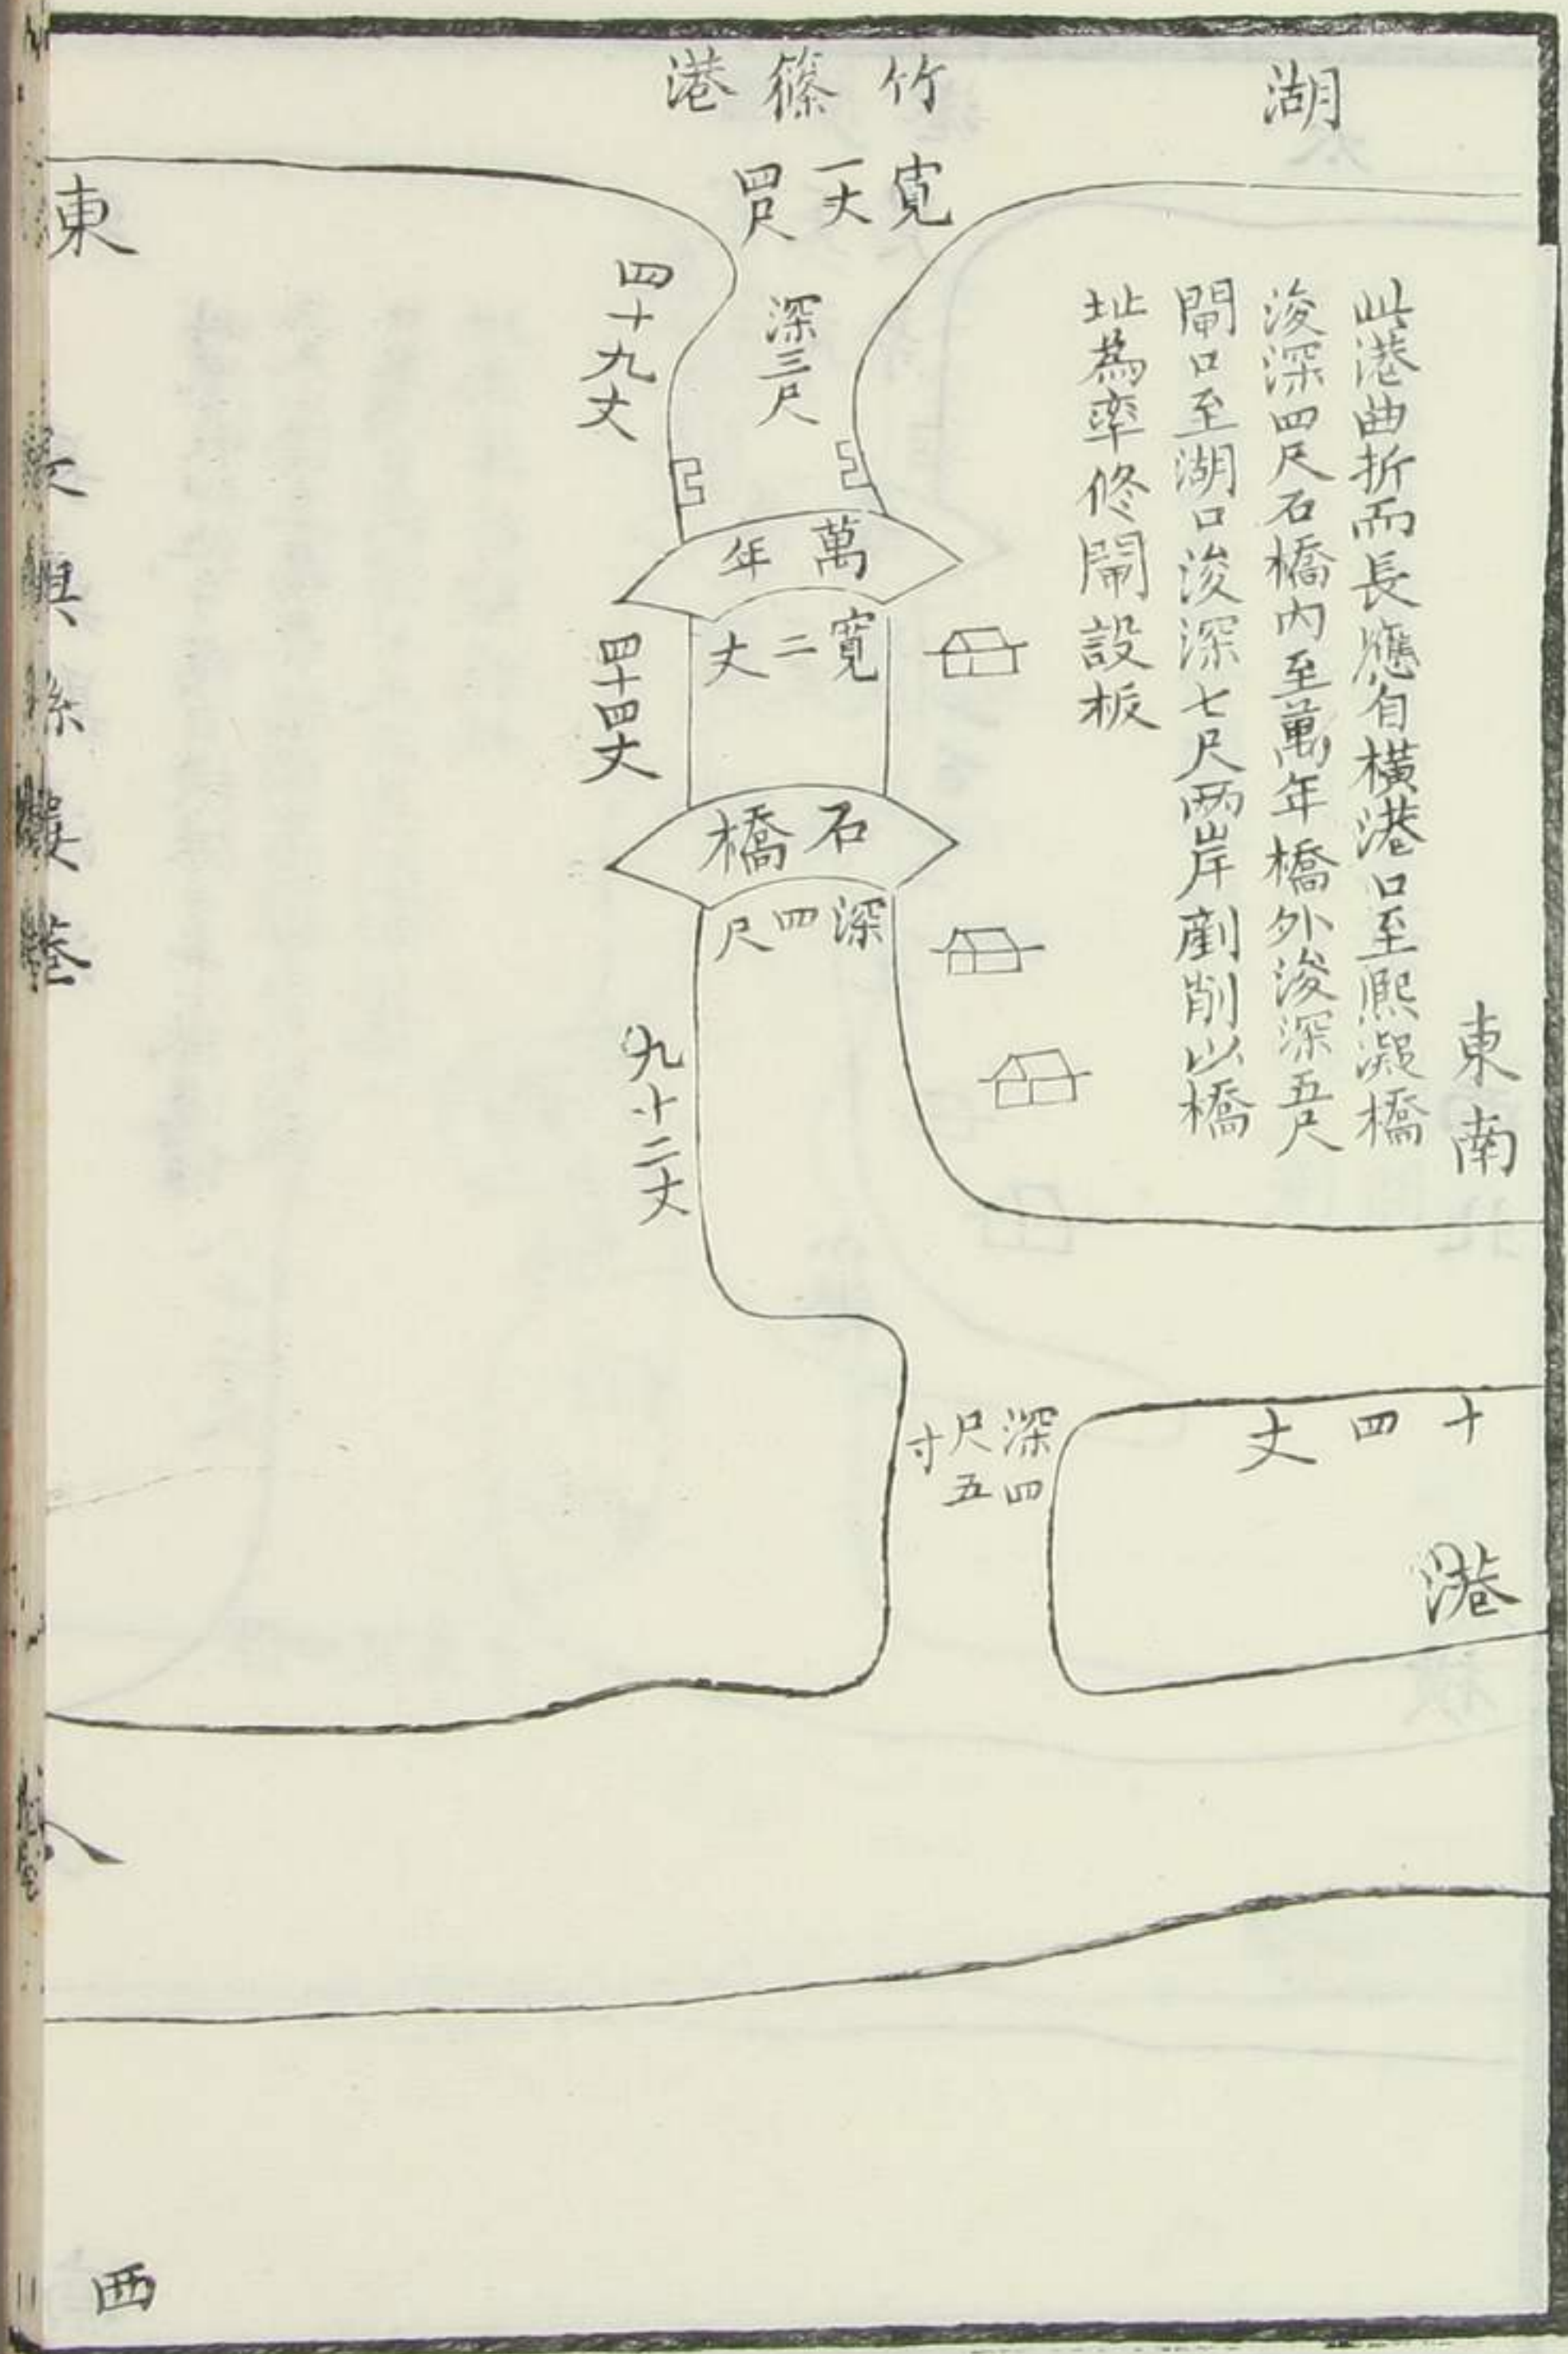 湖
竹篠港
寬一丈四尺
深三尺
四十九丈
東
此港曲折而長應自橫港口至熈凝橋
浚深四尺石橋內至萬年橋外浚深五尺
閘口至湖口浚深七尺兩岸剷削以橋
址為率修閘設板
東南
萬年
寬二丈
四十四丈
石橋
深四尺
九十二丈
十四丈
深四尺五寸
港
西